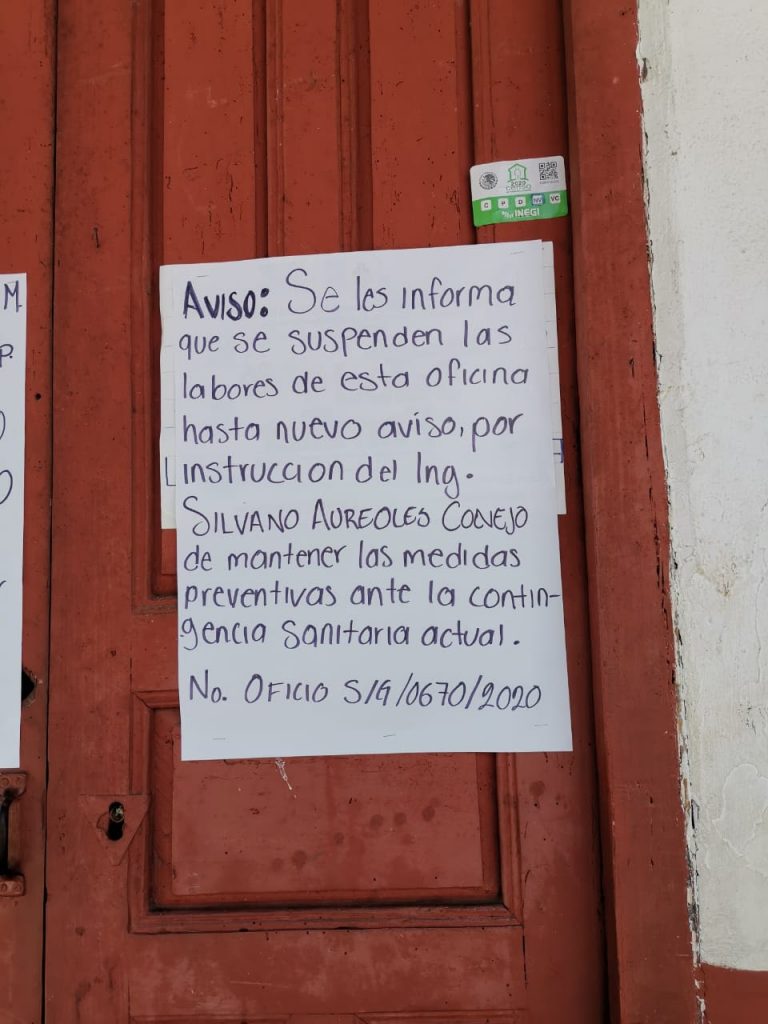 M.
P.
AVISO: Se les informa
que se suspenden las
labores de esta oficina
hasta nuevo aviso, por
instruccion del Ing.
SILVANO AUREOLES CONEJO
de mantener las medidas
preventivas ante la contin-
gencia sanitaria actual.
No. OFICIO S/G/0670/2020
2020
C P D NV VC
INEGI